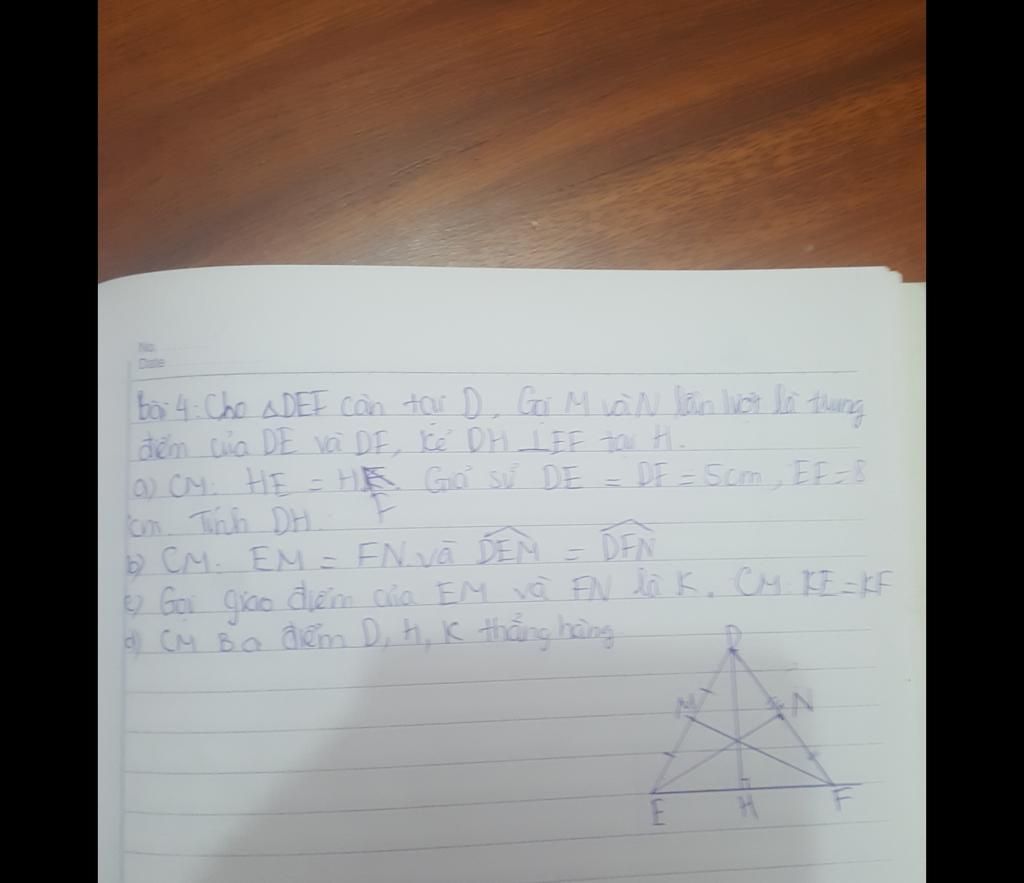 No.
Date
bài 4: Cho ΔDEF cân tại D. Gọi M và N lần lượt là trung
điểm của DE và DF, kẻ DH ⊥ EF tại H.
a) CM: HE = HF. Giả sử DE = DF = 5cm, EF = 8
cm. Tính DH.
b) CM: EM = FN và \widehat{DEM} = \widehat{DFN}
c) Gọi giao điểm của EM và FN là K. CM: KE = KF
d) CM Ba điểm D, H, K thẳng hàng
D
M N
E H F